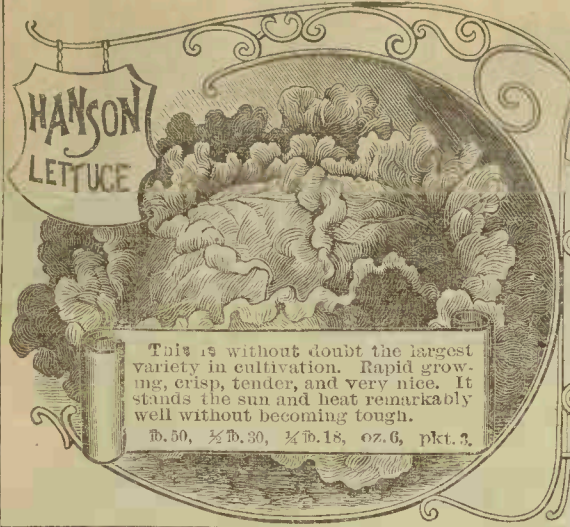 HANSON
LETTUCE
This is without doubt the largest
variety in cultivation. Rapid grow-
ing, crisp, tender, and very nice. It
stands the sun and heat remarkably
well without becoming tough.
℔.50, ½℔.30, ¼℔.18, oz.6, pkt.3.